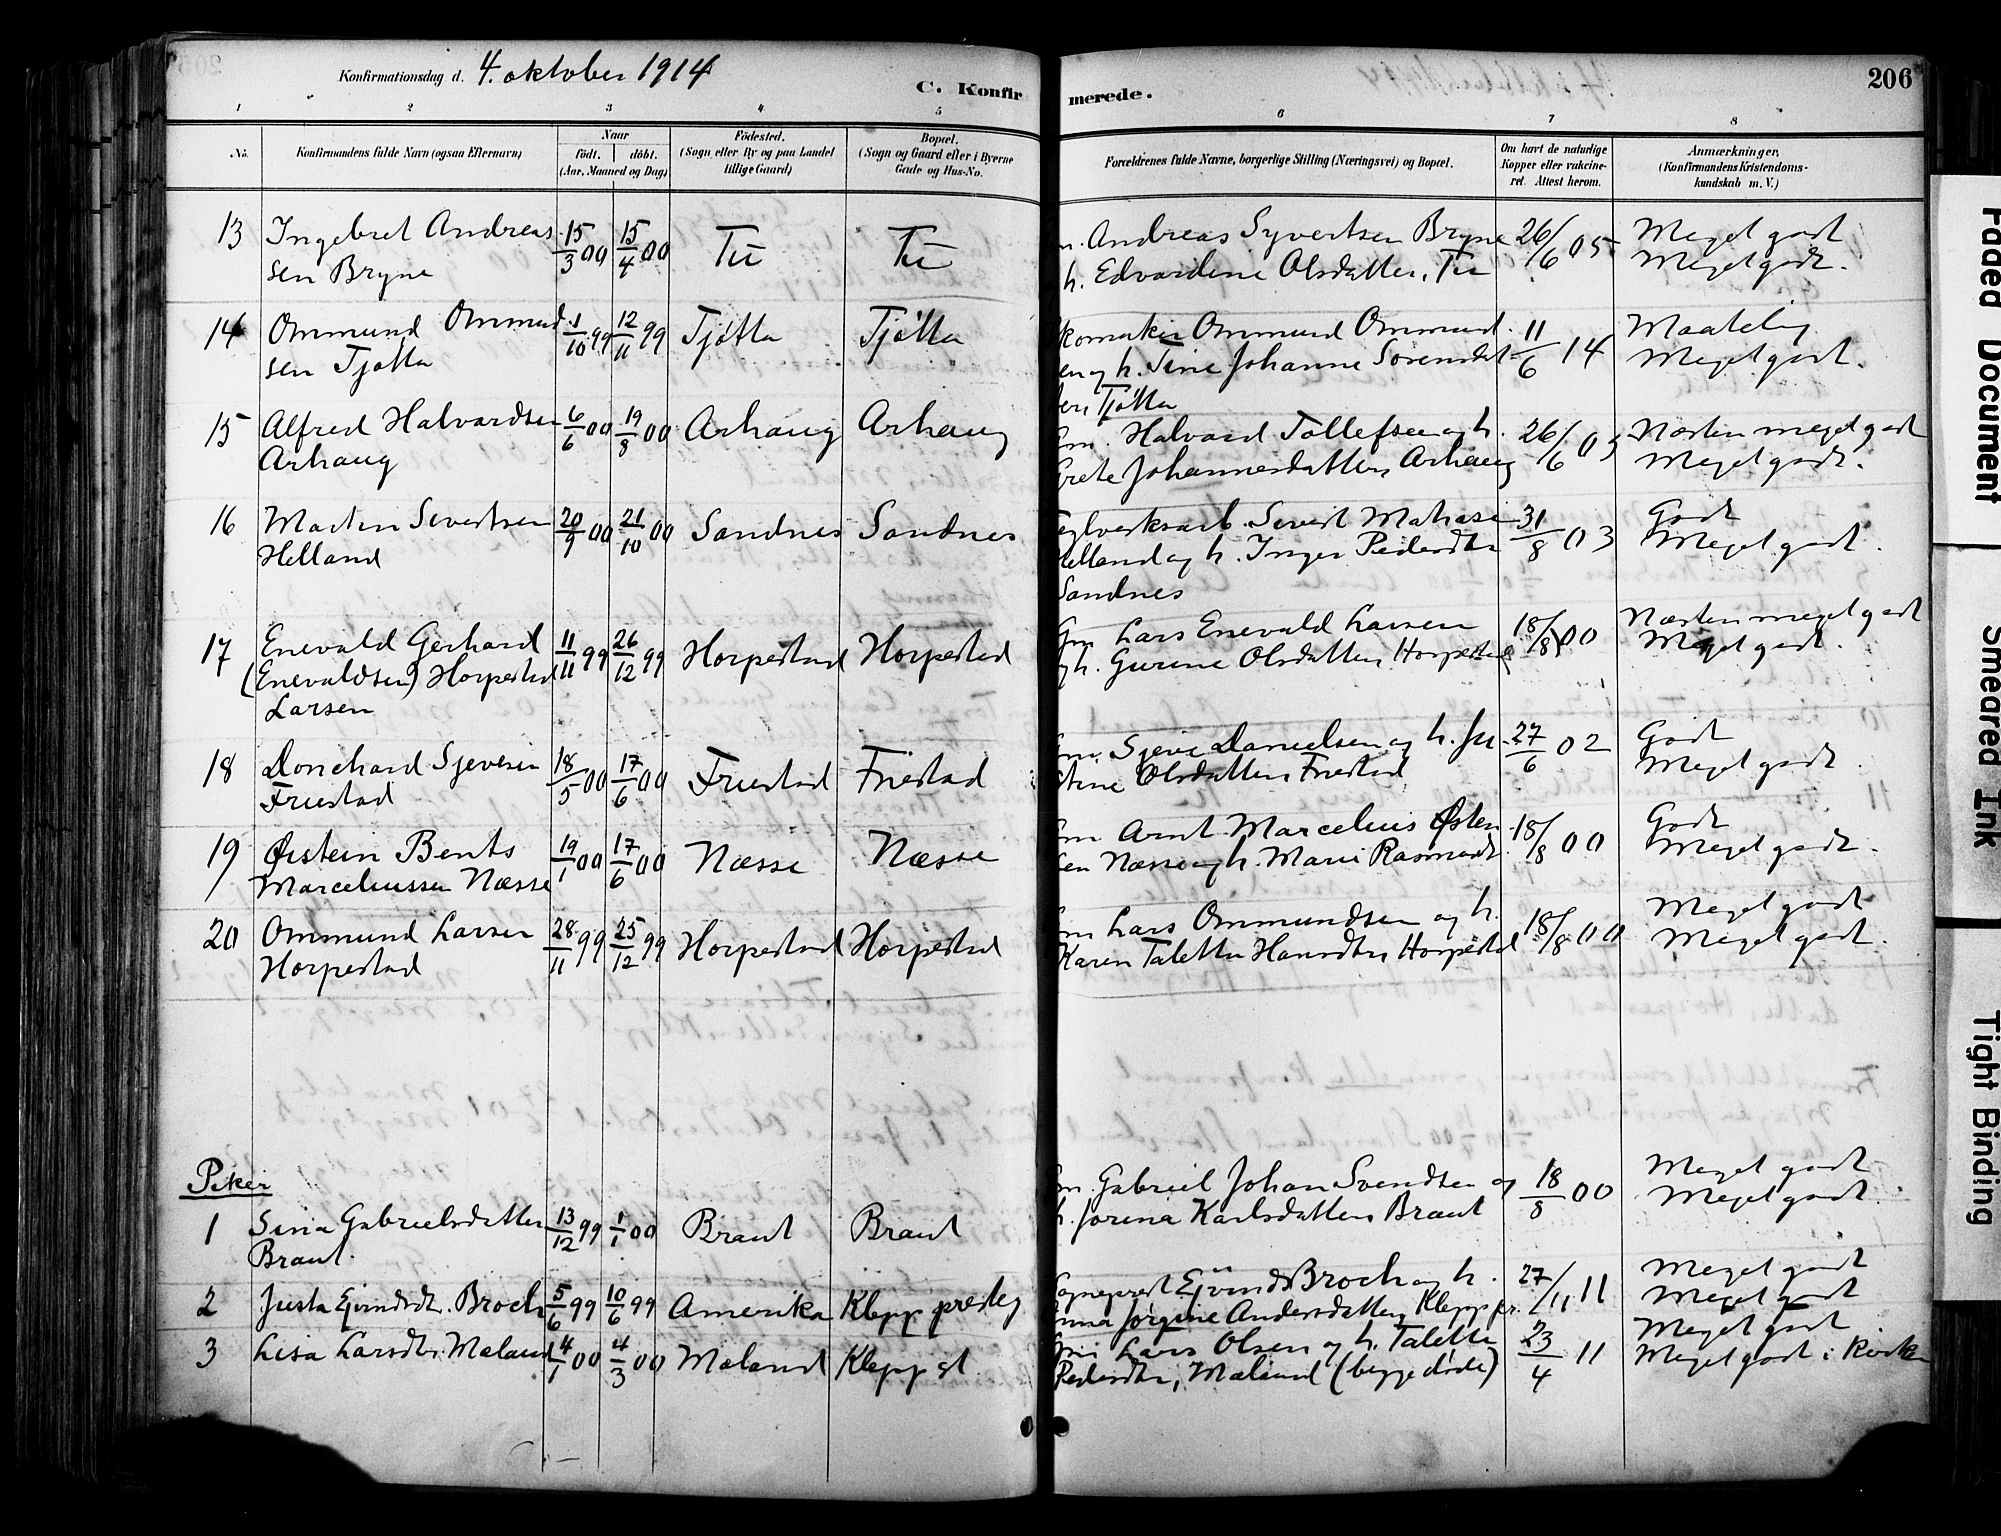 Konfirmationsdag d. 4. oktober 1914
C. Konfir
merede.
206
1 2 3 4 5 6 7 8
No.
Konfirmandens fulde Navn (ogsaa Efternavn)
Naar
født. døbt.
(Aar, Maaned og Dag)
Fødested.
(Sogn eller By og paa Landet
tillige Gaard)
Bopæl.
(Sogn og Gaard eller i Byerne
Gade og Hus-No.
Forældrenes fulde Navne, borgerlige Stilling (Næringsvei) og Bopæl.
Om havt de naturlige
Kopper eller vakcine-
ret. Attest herom.
Anmærkninger,
(Konfirmandens Kristendoms-
kundskab m. V.)
13 Ingebret Andreas 15/3 00 15/4 00 Tu Tu . Andreas Syvertsen Bryne 26/6 05 Meget godt
sen Bryne h. Edvardine Olsdatter, Tu Meget godt.
14 Ommund Ommund 1/10 99 12/11 99 Tjøtta Tjøtta komaker Ommund Ommund 11/6 14 Maatelig
sen Tjøtta en og h. Tine Johanne Sørensdat Meget godt.
ter, Tjøtta
15 Alfred Halvardsen 6/6 00 19/8 00 Arhaug Arhaug Gm. Halvard Tollefsen og h. 26/6 05 Næsten meget godt
Arhaug Grete Johannesdatter, Arhaug Meget godt.
16 Martin Sivertsen 20/9 00 21/10 00 Sandnes Sandnes eglverksarb. Sivert Mathias 31/8 03 Godt
Helland Helland og h. Inger Pedersdtr Meget godt.
Sandnes
17 Enevald Gerhard 11/11 99 26/12 99 Horpestad Horpestad Gm Lars Enevald Larsen 18/8 00 Næsten meget godt
(Enevaldsen) Horpestad og h. Gurine Olsdatter, Horpestad Meget godt.
Larsen
18 Donchard Sjevesen 18/5 00 17/6 00 Fruestad Fruestad Gm Sjeve Danielsen og h. Ju- 27/6 02 Godt
Fruestad stine Olsdatter, Fruestad Meget godt.
19 Øistein Bents 19/1 00 17/6 00 Næsse Næsse Gm Arnt Marcelius Østen 18/8 00 Godt
Marceliussen Næsse sen Næsse og h. Marie Rasmusdt. Meget godt.
20 Ommund Larsen 28/11 99 25/12 99 Horpestad Horpestad Gm Lars Ommundsen og h. 18/8 00 Meget godt
Horpestad Karen Taletta Hansdtr, Horpestad Meget godt.
Piker
1 Sina Gabrielsdatter 13/12 99 1/1 00 Braut Braut Gm. Gabriel Johan Svendsen og 18/8 00 Meget godt
Braut h. Jorina Karlsdatter, Braut Meget godt.
2 Justa Ejvindsdt. Broch 5/6 99 10/6 99 Amerika Klepp presteg Sogneprest Ejvind Broch og h. 27/11 11 Meget godt
Anna Jørgine Andersdatter, Klepp pr. Meget godt
3 Lisa Larsdtr. Mæland 4/1 00 4/3 00 Mæland Klepp st Gm Lars Olsen og h. Taletta 23/4 11 Meget godt
Pedersdtr., Mæland (begge døde) Meget godt i kirken
Faded Document
Smeared Ink
Tight Binding